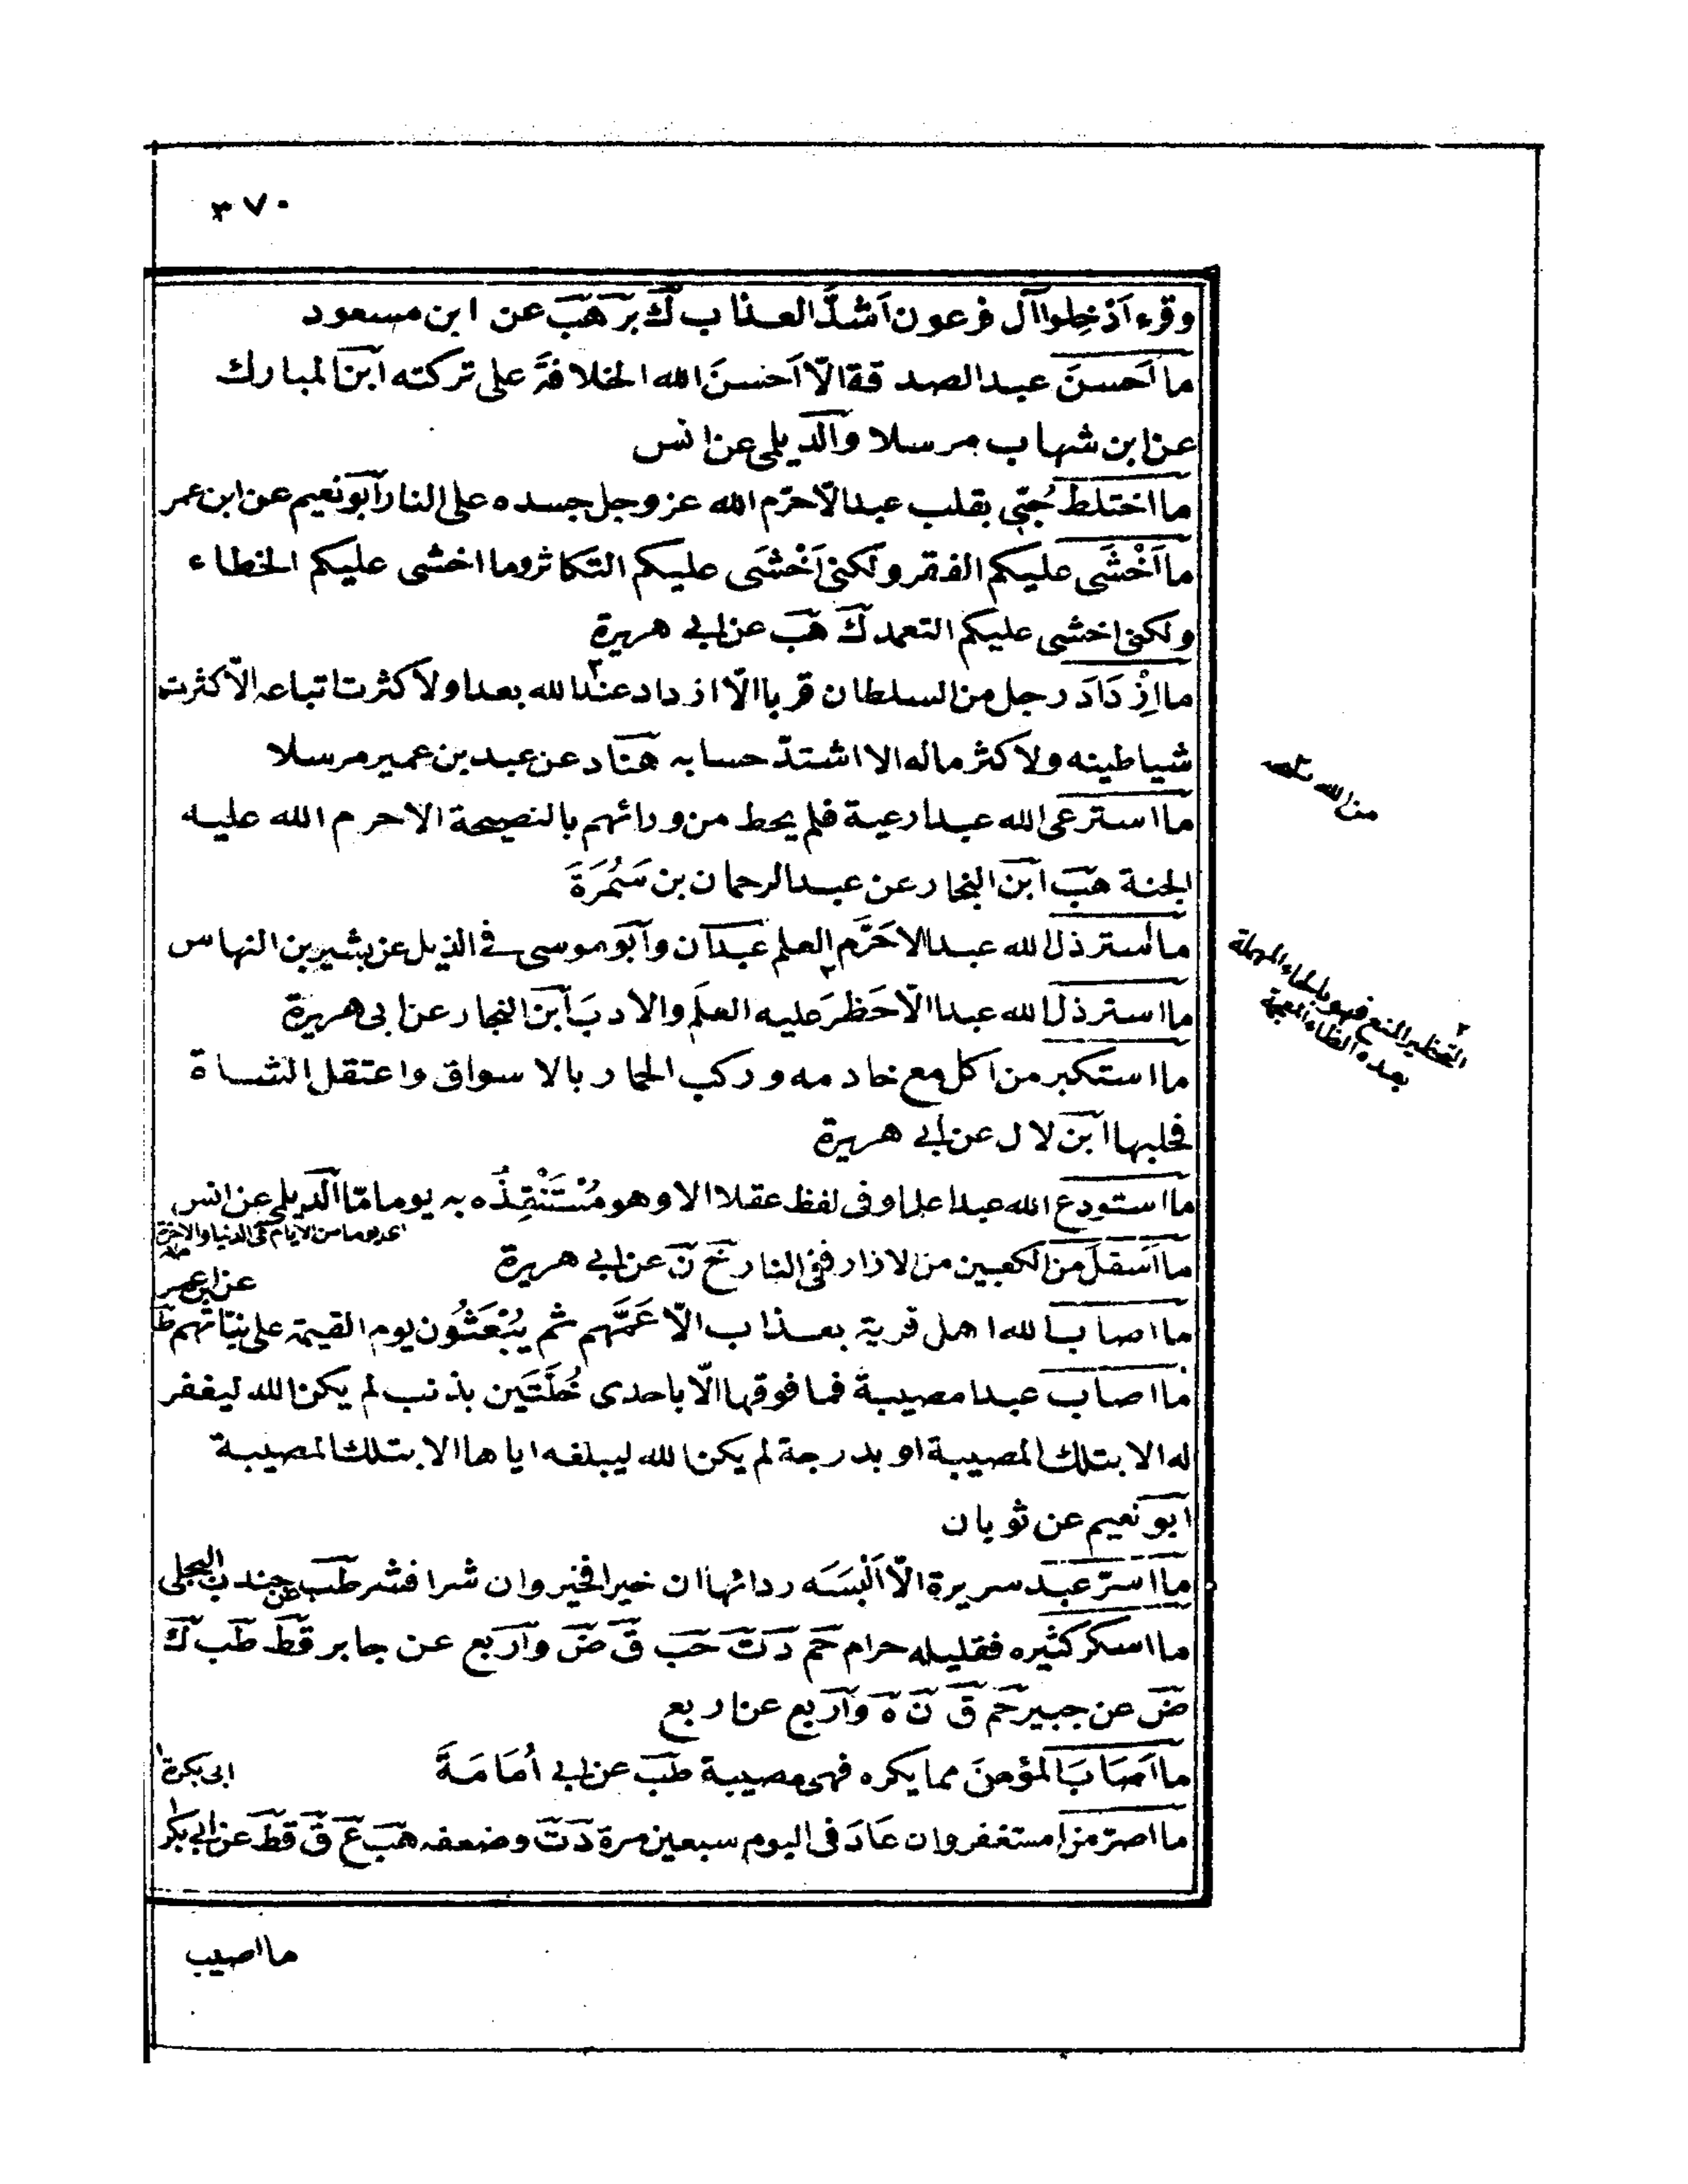 ٣٧٠
وقرء اَدْخِلوا آل فرعون اَشدَّ العذاب كَ بر هَب عن ابن مسعود
ما اَحسنَ عبد الصدقة الّا اَحْسنَ الله الخلافة على تركته ابن المبارك
عن ابن شهاب مرسلا والديلمى عن انس
ما اختلط حُبّى بقلب عبد الّا حرّم الله عز وجل جسده على النار ابو نعيم عن ابن عمر
ما اَخْشَى عليكم الفقر ولكنى اَخْشَى عليكم التكاثر وما اخشى عليكم الخطاء
ولكنى اخشى عليكم التعمد ك هب عن ابى هريرة
ما اِزْدَادَ رجل من السلطان قربا الّا ازداد عند٢ الله بعدا ولا كثرت اتباعه الّا كثرت
شياطينه ولا كثر ماله الا اشتدّ حسابه هناد عن عبيد بن عمير مرسلا
من الله نخـ
ما استرعى الله عبدا رعية فلم يحط من ورائهم بالنصيحة الا حرم الله عليه
الجنة هب ابن النجار عن عبد الرحمان بن سَمُرَةَ
ما استرذل الله عبدا الا حَرَّم العلم عبدان وابو موسى فى الذيل عن بشير بن النهاس
ما استرذل الله عبدا الّا حَظرَ عليه العلَم والادبَ ابن النجار عن ابى هريرة
٢ التحظير المنع فهو بالحاء المهملة
بعده الظاء المعجمة
ما استكبر من اكل مع خادمه وركب الحمار بالاسواق واعتقل الشاة
فحلبها ابن لال عن ابى هريرة
ما استودع الله عبدا علما وفى لفظ عقلا الا وهو مُسْتَنْقِذُه به يوما مّا الديلمى عن انس
اى يوما من الايام فى الدنيا والاخرة
ما اَسْفلَ من الكعبين من الازار ففى النار خ ن عن ابى هريرة
عن ابن عمر
ما اصاب الله اهل قرية بعذاب الّا عَمَّهم ثم يُبْعَثُون يوم القيمة على نيّاتهم ط
ما اصاب عبدا مصيبة فما فوقها الّا باحدى خُلَّتَين بذنب لم يكن الله ليغفر
له الا بتلك المصيبة او بدرجة لم يكن الله ليبلغه اياها الا بتلك المصيبة
ابو نعيم عن ثوبان
ما اسرّ عبد سريرة الّا اَلْبسَه ردائها ان خيرا فخير وان شرا فشر طب عن جندب البجلى
ما اسكر كثيره فقليله حرام حم د ت حب ق ض واربع عن جابر قط طب ك
ض عن جبير حم ق ن ه واربع عن اربع
ما اَصَابَ المؤمنَ مما يكره فهى مصيبة طب عن ابى اُمَامَةَ
ابى بكرة
ما اصرّ من استغفر وان عَادَ فى اليوم سبعين مرة د ت وضعفه هب ع ق قط عن ابى بكر
ما اصيب